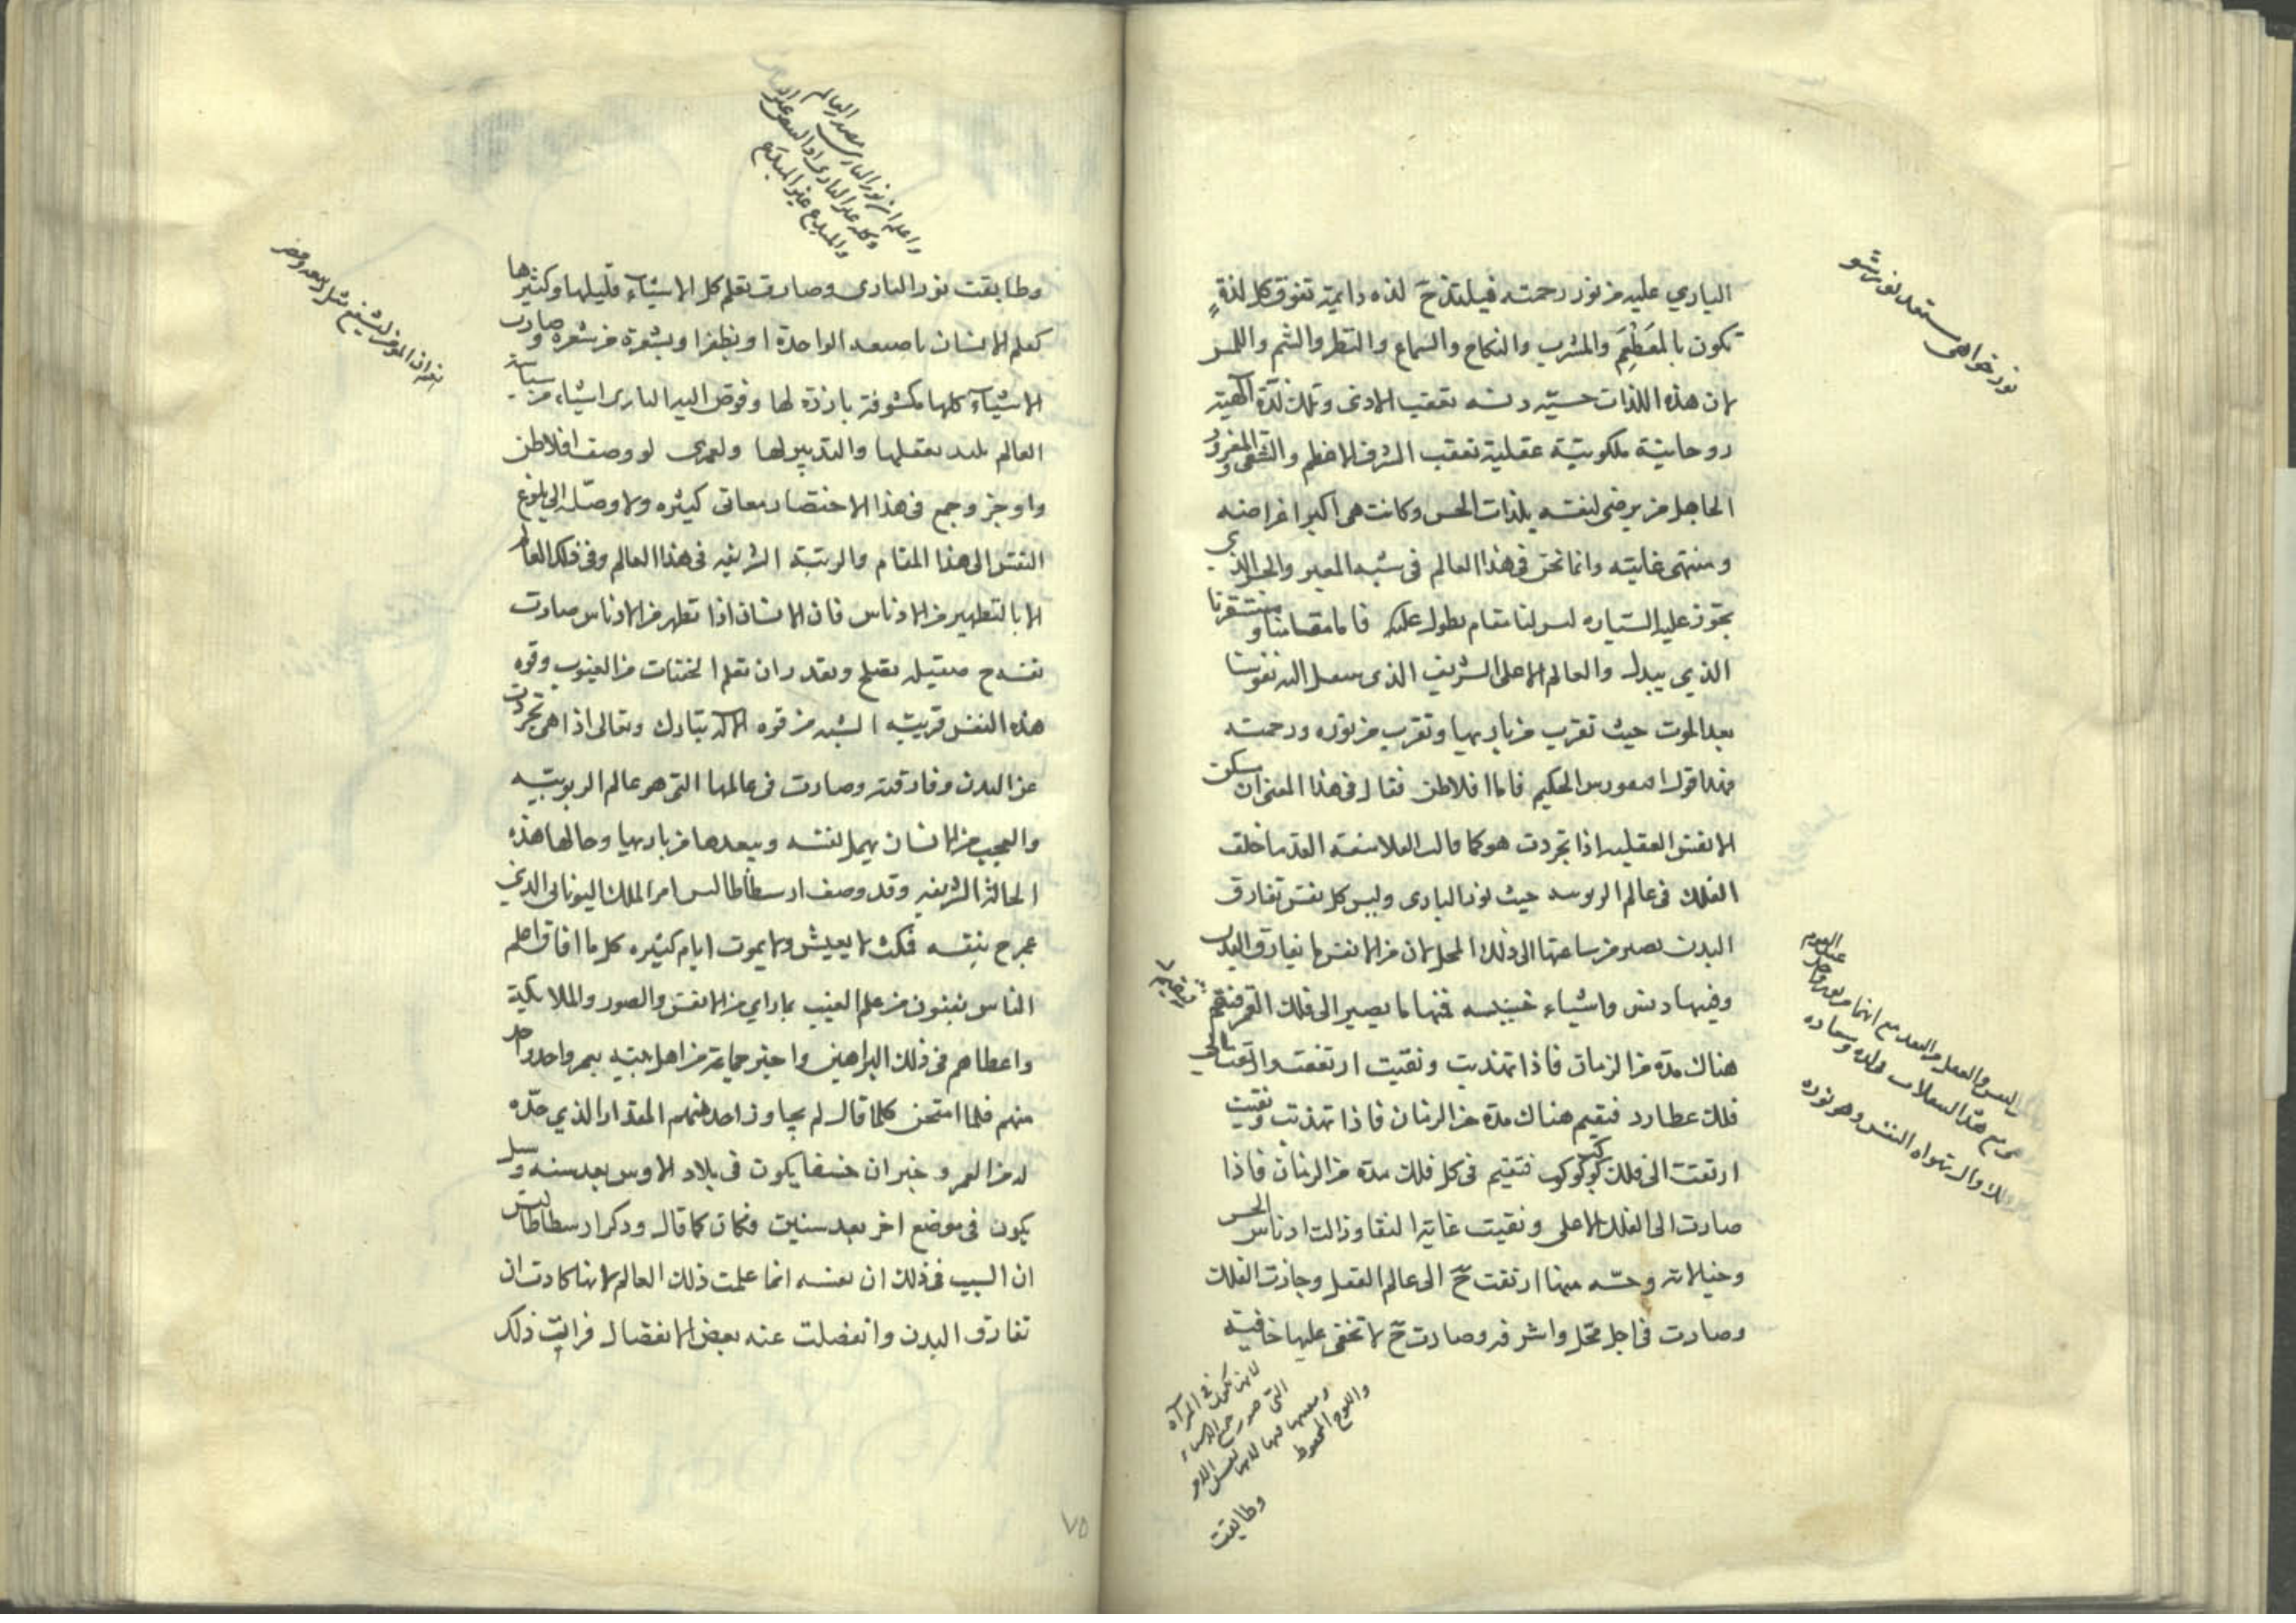 الباري عليه من نور رحمته فيلتذ ح لذه دايمة تفوق كل لذة
تكون بالمطعم والمشرب والنكاح والسماع والنظر والشم واللمس
لان هذه اللذات حسيّه دنسه تعقب الاذى وتلك لذة آلهية
روحانية ملكوتية عقلية تعقب الشرف الاعظم والشقي المغرور
الجاهل من يرضى لنفسه بلذات الحس وكانت هي اكبر اغراضه
ومنتهى غايته وانما نحن في هذا العالم في شبه المعبر والجسر الذي
يجوز عليه السياره ليس لنا مقام يطول عليه فاما مقامنا ومستقرنا
الذي يبدل والعالم الاعلى الشريف الذي ينتقل اليه نفوسنا
بعد الموت حيث تقرب من باريها وتقرب من نوره ورحمته
فهذا قول الحكيم فاما افلاطن فقال في هذا المعنى ان مسكن
الانفس العقليه اذا تجردت هو كما قالت الفلاسفة القدما خلف
الفلك في عالم الربوبيه حيث نور الباري وليس كل نفس تفارق
البدن تصير من ساعتها الى ذلك المحل لان من الانفس ما يفارق البدن
وفيها دنس واشياء خبيثه فمنها ما يصير الى فلك القمر فيقيم
هناك مدة من الزمان فاذا تهذبت ونقيت ارتفعت الى
فلك عطارد فيقيم هناك مدة من الزمان فاذا تهذبت ونقيت
ارتقت الى فلك كوكب كوكب فتقيم في كل فلك مدة من الزمان فاذا
صارت الى الفلك الاعلى ونقيت غاية النقا وزالت ادناس الحس
وخيلاته وخسه منها ارتقت ح الى عالم العقل وجازت الفلك
وصارت في اجل محل واشرفه وصارت ح لا تخفى عليها خافية
نور خواهى مستعد نور شو
لانها تكون في المرآه
واللوح المحفوظ
وطابقت
وطابقت نور الباري وصارت تعلم كل الاشياء قليلها وكثيرها
كعلم الانسان باصبعه الواحدة او بظفر او بشعرة من شعره وصارت
الاشياء كلها مكشوفة بارزة لها وفوض اليها الباري اشياء من سياسة
العالم بلتذ بفعلها والتدبير لها ولعمري لو وصف افلاطن
واوجز وجمع في هذا الاختصار معاني كثيره ولا وصل الى بلوغ
النفس الى هذا المقام والرتبة الشريفه في هذا العالم وفي ذلك العالم
الا بالتطهير من الادناس فان الانسان اذا تطهر من الادناس صارت
نفسه ح صقيله تصلح وتقدر ان تعلم الخفيات من الغيوب وقوه
هذه النفس قريبة الشبه من قوه الاله تبارك وتعالى اذا هي تجردت
عن البدن وفارقته وصارت في عالمها التي هو عالم الربوبيه
والعجب من الانسان يهمل نفسه ويبعدها من باريها وحالها هذه
الحالة الشريفه وقد وصف ارسطاطالس امر الملك اليوناني الذي
عرج بنفسه فمكث لا يعيش ولا يموت ايام كثيره كل ما افاق اعلم
الناس بفنون من علم الغيب بما راي من الانفس والصور والملايكة
واعطاهم في ذلك البراهين واخبر جماعة من اهل بيته بعمر واحد واحد
منهم فلما امتحن كلما قال لم يجاوز احد منهم المقدار الذي حدّه
له من العمر وخبر ان خسفا يكون في بلاد الاوس بعد سنه وسيل
يكون في موضع اخر بعد سنين فكان كما قال وذكر ارسطاطاليس
ان السبب في ذلك ان نفسه انما علمت ذلك العالم لانها كادت ان
تفارق البدن وانفصلت عنه بعض الانفصال فرات ذلك
٧٥